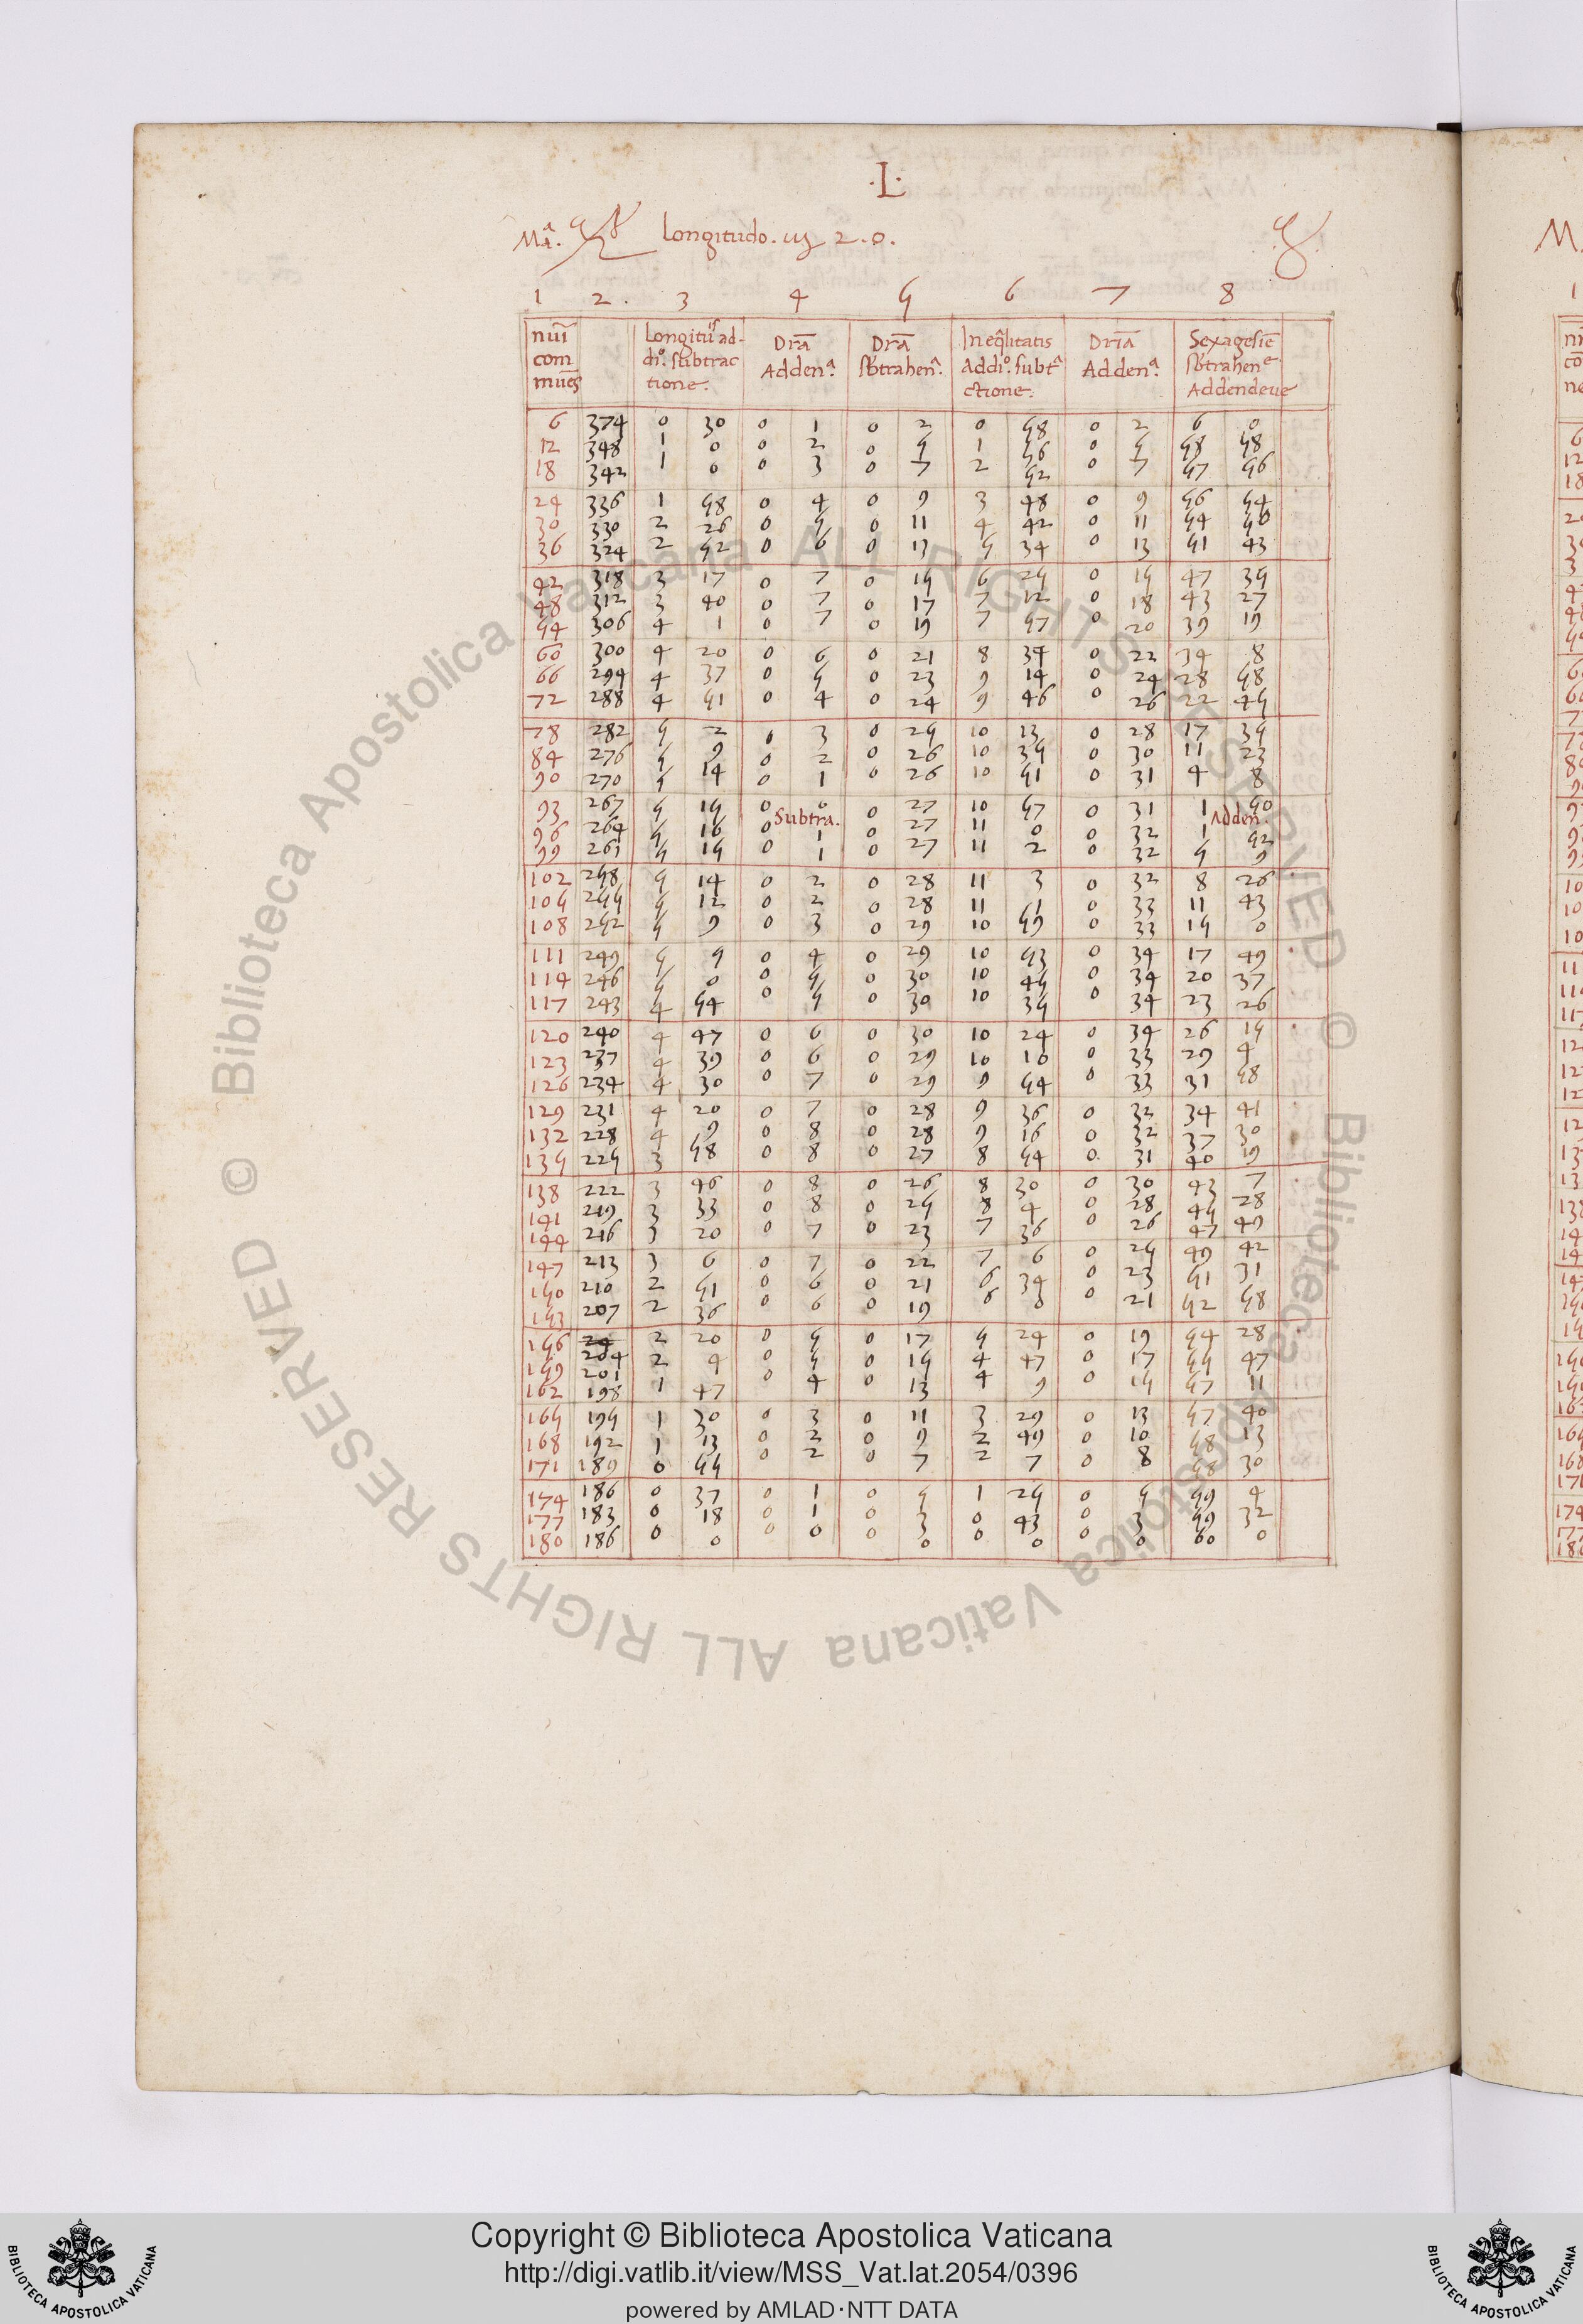 .L.
Longitudo. 2.0.
1 2. 3 4 5 6 7 8
nūi com mūes
Longitu^s ad-
di^o. subtrac
tione.
Dr̄a
Adden^a.
Dr̄a
sb̄trahen^a.
Ineq̄litatis
addi^o. subt^a
ctione.
Dr̄ia
Adden^a.
Sexagesiē
sb̄trahen^e.
Addendeue
6 374 0 30 0 1 0 2 0 58 0 2 6 0
12 348 1 0 0 2 0 5 1 56 0 5 58 58
18 342 1 0 0 3 0 7 2 52 0 7 57 56
24 336 1 58 0 4 0 9 3 48 0 9 56 54
30 330 2 26 0 5 0 11 4 42 0 11 54 50
36 324 2 52 0 6 0 13 5 34 0 13 51 43
42 318 3 17 0 7 0 15 6 25 0 15 47 35
48 312 3 40 0 7 0 17 7 12 0 18 43 27
54 306 4 1 0 7 0 19 7 57 0 20 39 19
60 300 4 20 0 6 0 21 8 34 0 22 34 8
66 294 4 37 0 5 0 23 9 14 0 24 28 58
72 288 4 51 0 4 0 24 9 46 0 26 22 45
78 282 5 2 0 3 0 25 10 13 0 28 17 35
84 276 5 9 0 2 0 26 10 35 0 30 11 23
90 270 5 14 0 1 0 26 10 51 0 31 4 8
93 267 5 15 0 0 0 27 10 57 0 31 1 50
Subtra. Adden
96 264 5 16 0 1 0 27 11 0 0 32 1 52
99 261 5 15 0 1 0 27 11 2 0 32 5 9
102 258 5 14 0 2 0 28 11 3 0 32 8 26
105 255 5 12 0 2 0 28 11 1 0 33 11 43
108 252 5 9 0 3 0 29 10 59 0 33 15 0
111 249 5 5 0 4 0 29 10 53 0 34 17 49
114 246 5 0 0 5 0 30 10 45 0 34 20 37
117 243 4 54 0 5 0 30 10 35 0 34 23 26
120 240 4 47 0 6 0 30 10 24 0 34 26 15
123 237 4 39 0 6 0 29 10 10 0 33 29 4
126 234 4 30 0 7 0 29 9 54 0 33 31 58
129 231 4 20 0 7 0 28 9 36 0 32 34 41
132 228 4 9 0 8 0 28 9 16 0 32 37 30
135 225 3 58 0 8 0 27 8 54 0 31 40 19
138 222 3 46 0 8 0 26 8 30 0 30 43 7
141 219 3 33 0 8 0 25 8 4 0 28 45 28
144 216 3 20 0 7 0 23 7 36 0 26 47 49
147 213 3 6 0 7 0 22 7 6 0 25 49 42
150 210 2 51 0 6 0 21 6 34 0 23 51 31
153 207 2 36 0 6 0 19 6 0 0 21 52 58
156 204 2 20 0 5 0 17 5 24 0 19 54 28
159 201 2 4 0 5 0 15 4 47 0 17 55 47
162 198 1 47 0 4 0 13 4 9 0 15 57 11
165 195 1 30 0 3 0 11 3 29 0 13 57 40
168 192 1 13 0 2 0 9 2 49 0 10 58 13
171 189 0 55 0 2 0 7 2 7 0 8 58 30
174 186 0 37 0 1 0 5 1 25 0 5 59 4
177 183 0 18 0 1 0 3 0 43 0 3 59 32
180 186 0 0 0 0 0 0 0 0 0 0 60 0
Copyright © Biblioteca Apostolica Vaticana
http://digi.vatlib.it/view/MSS_Vat.lat.2054/0396
powered by AMLAD·NTT DATA
BIBLIOTECA APOSTOLICA VATICANA
BIBLIOTECA APOSTOLICA VATICANA
© Biblioteca Apostolica Vaticana ALL RIGHTS RESERVED © Biblioteca Apostolica Vaticana ALL RIGHTS RESERVED